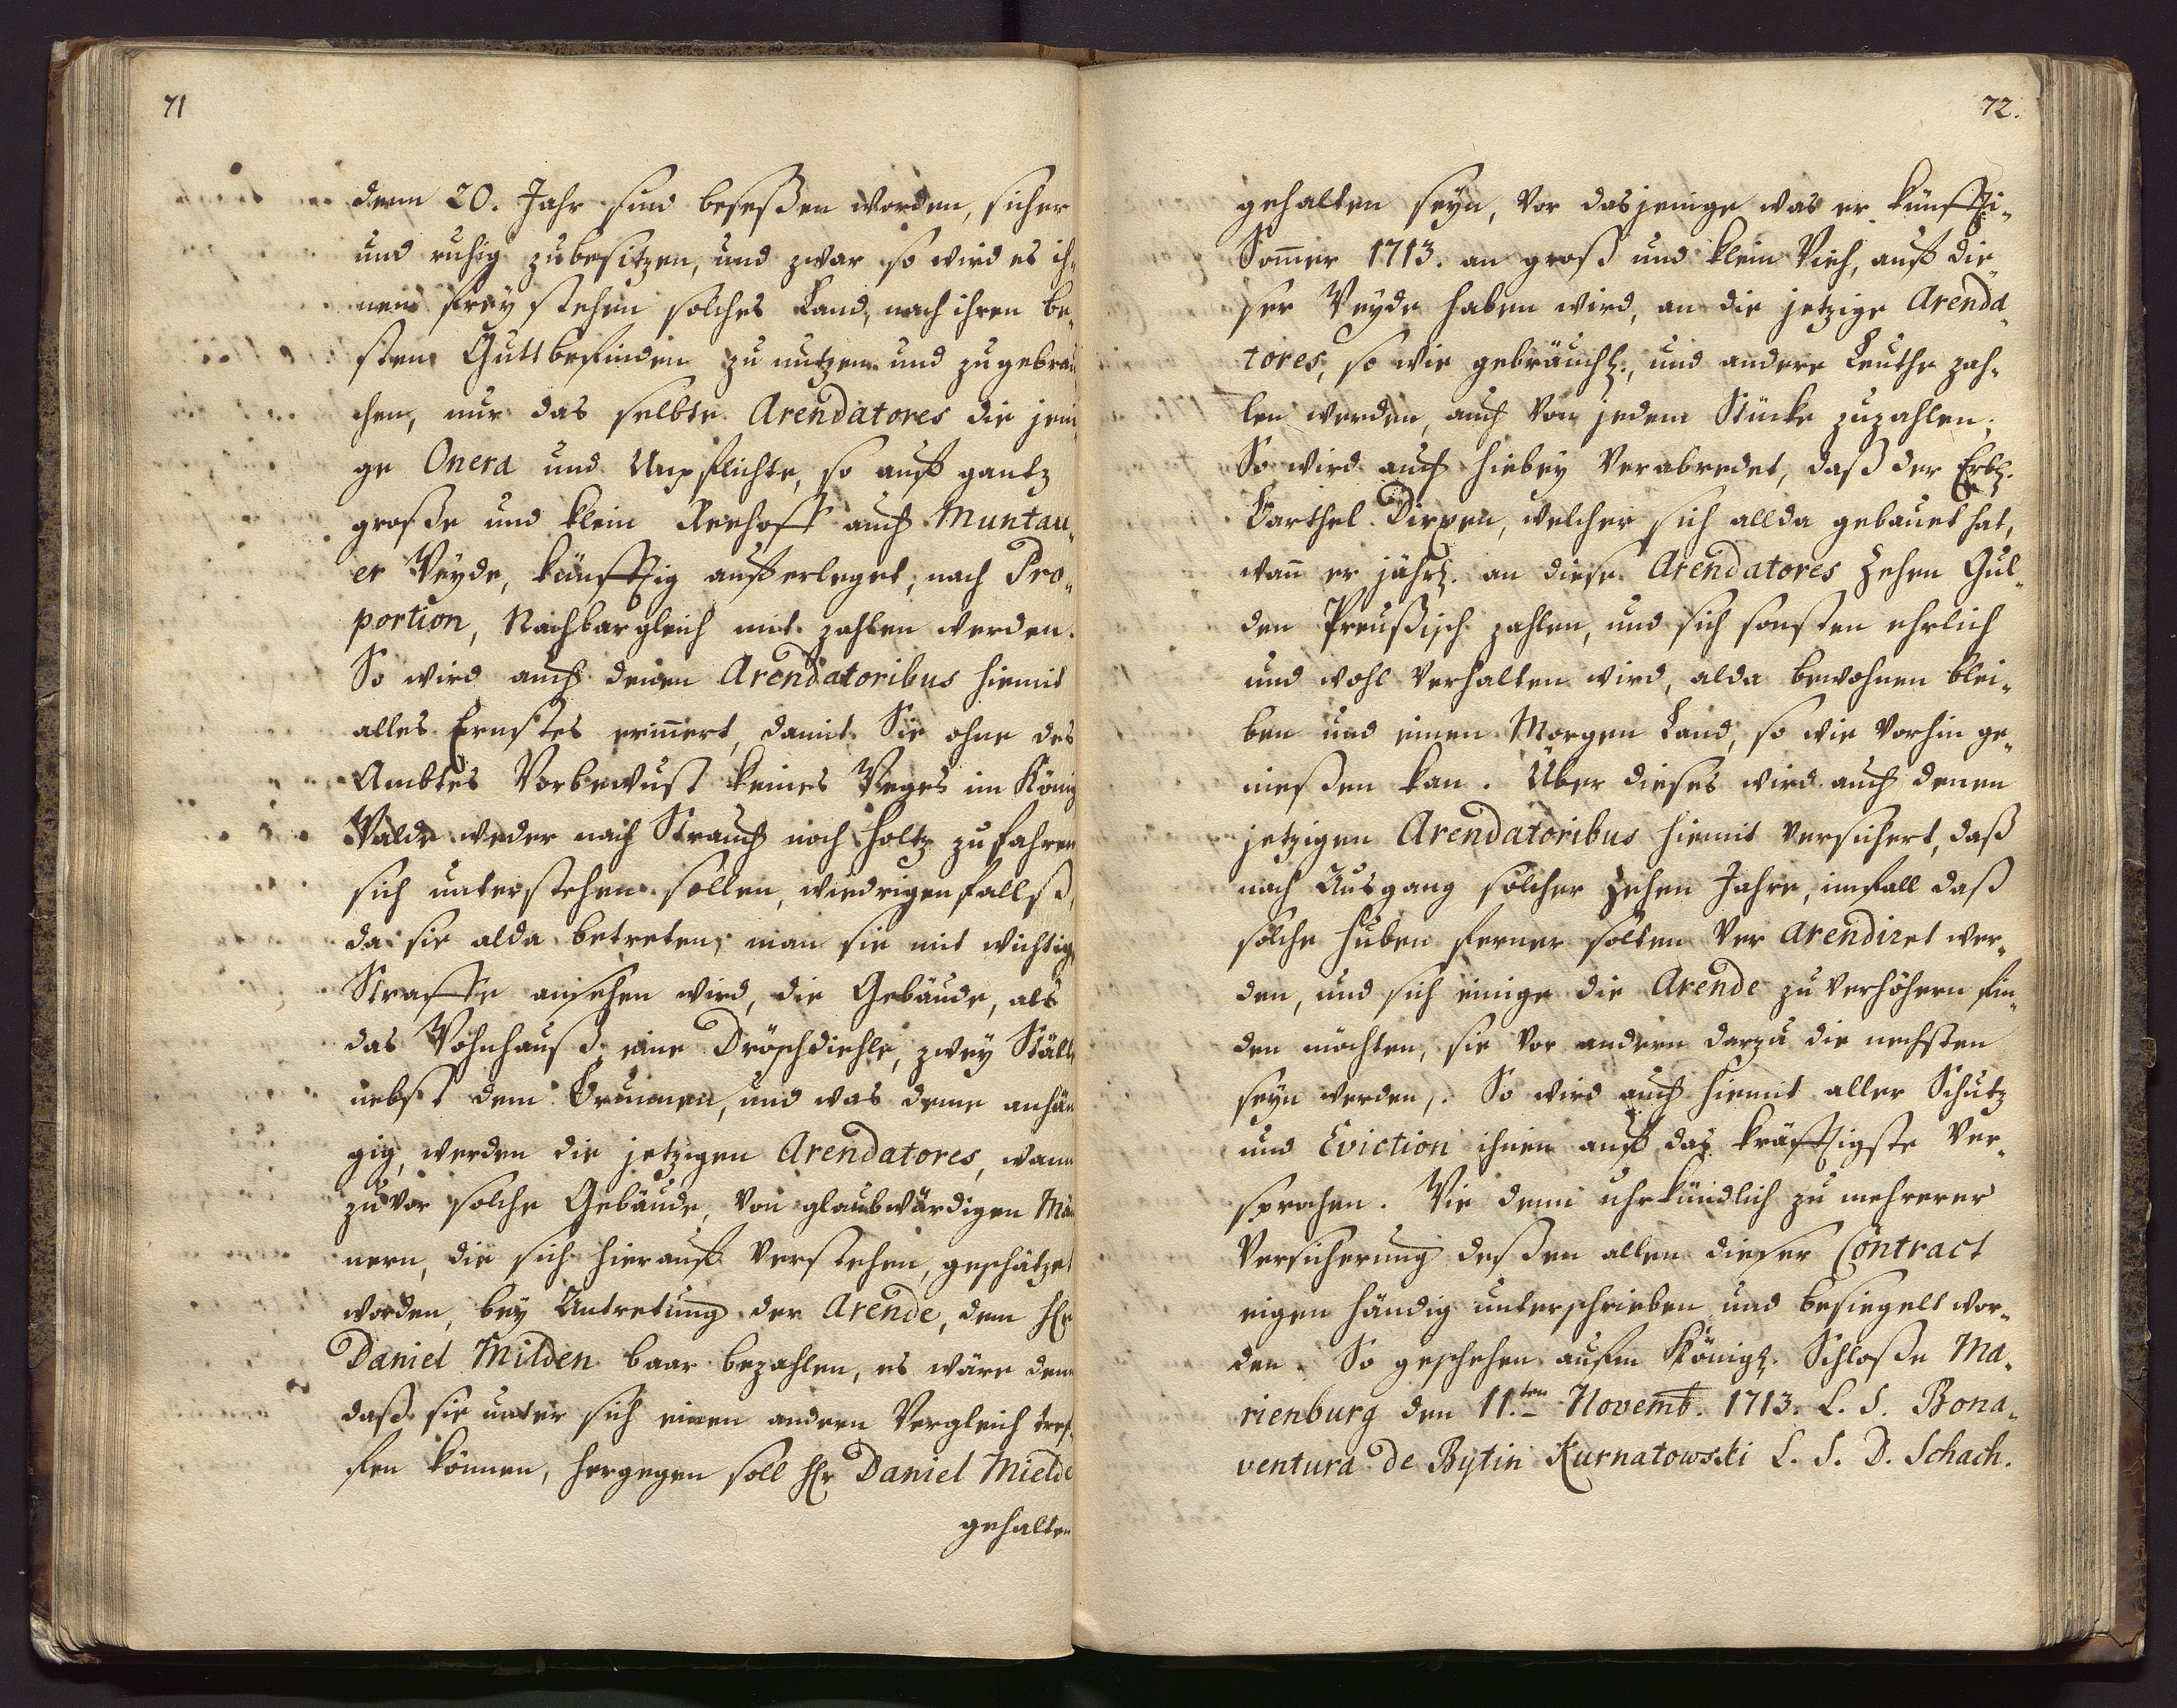 71
denn 20. Jahr sind beseßen worden, sicher
und ruhig zubesitzen, und zwar so wird es ih„
nen freÿ stehen solches Land, nach ihren be„
sten Guttbefinden zu nutzen und zu gebrau
chen, nur das selbte Arendatores die jeni
ge Onera und Unpflichte, so auff gantz
große und klein auch Muntau„
er Weyde, künfftig aufferleget, nach Pro„
portion, Nachbargleich mit zahlen werden.
So wird auch denen Arendatoribus hiemit
alles Ernstes erinnert, damit Sie ohne des
Ambtes Vorbewust keines Weges im König
Walde weder nach Strauch noch Holtz zufahren
sich unterstehen sollen, wiedrigenfallß,
da sie alda betreten, man sie mit wichtige
Straffe ansehen wird, die Gebäude, als
das Wohnhauß, eine Dröschdiehle, zweÿ Ställe
nebst dem Brunnen, und was deme anhän
gig, werden die jetzigen Arendatores, wann
zuvor solche Gebäude, von glaubwürdigen Män
nern, die sich hierauff verstehen, geschätzet
worden, beÿ Antretung der Arende, dem Hr
Daniel Milden baar bezahlen, es wäre denn
daß sie unter sich einen andern Vergleich tref„
fen können, hergegen soll Hr Daniel Mielde
gehalten
72.
gehalten seÿn, vor dasjenige was er künffti„
Som̄er 1713. an groß und klein Vieh, auff die„
ser Weyde haben wird, an die jetzige Arenda„
tores, so wie gebräuchl:, und andere Leuthe zah„
len werden, auch von jedem Stücke zuzahlen;
So wird auch hiebeÿ verabredet, daß der Erb.
Barthel Dirxen, welcher sich allda gebauet hat,
wan̄ er jährl. an diese Arendatores zehen Gul„
den Preußisch zahlen, und sich sonsten ehrlich
und wohl verhalten wird, alda bewohnen blei„
ben und einen Morgen Land, so wie vorhin ge„
nießen kan. Über dieses wird auch denen
jetzigen Arendatoribus hiemit versichert, daß
nach Ausgang solcher zehen Jahre, imfall daß
solche Huben ferner solten ver arendiret wer„
den, und sich einige die Arende zu verhöhern fin„
den möchten, sie vor andern darzu die nechsten
seÿn werden,. So wird auch hiemit aller Schutz
und Eviction ihnen auff das kräfftigste ver„
sprochen. Wie denn uhrkündlich zu mehrerer
Versicherung deßen allen dieser Contract
eigen händig unterschrieben und besiegelt wor„
den. So geschehen aufm Königl. Schloße Ma„
rienburg den 11.ten Novemb. 1713. L. S. Bona„
ventura de Bytin Kurnatowski L. S. D. Schach.